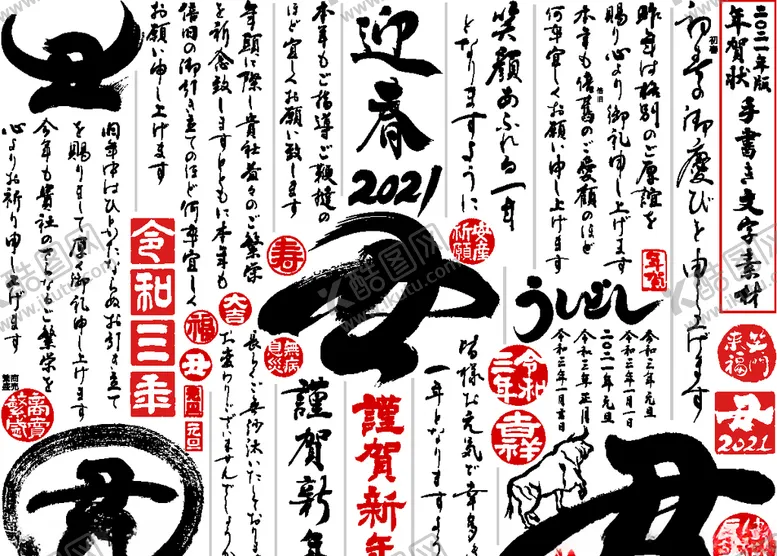 二〇二一年版
年賀状 手書き文字素材
初春の御慶びを申し上げます
初春
昨年は格別のご厚誼を
賜り心より御礼申し上げます
本年も倍舊のご愛顧のほど
倍旧
何卒宜しくお願い申し上げます
年賀
うしどし
令和三年元旦
令和三年一月一日
二〇二一年元旦
令和三年正月
令和三年一月吉日
笑門来福
丑
2021
笑顔あふれる一年
となりますように
安産祈願
迎春
2021
丑
令和三年
吉祥
皆様が元気で幸多き
一年となりますよう
謹賀新年
謹賀新年
本年もご指導ご鞭撻の
ほど宜しくお願い致します
寿
無病息災
年頭に際し貴社益々のご繁栄
を祈念致しますとともに本年も
倍旧の御引き立てのほど何卒宜しく
お願い申し上げます
大吉
福
丑
元旦
元旦
長らくご無沙汰いたしておりま
お変わりございませんでしょうか
令和三年
旧年中はひとかたならぬお引き立て
を賜りまして厚く御礼申し上げます
今年も貴社のさらなるご繁栄を
心よりお祈り申し上げます
商売繁盛
商売繁盛
丑
丑